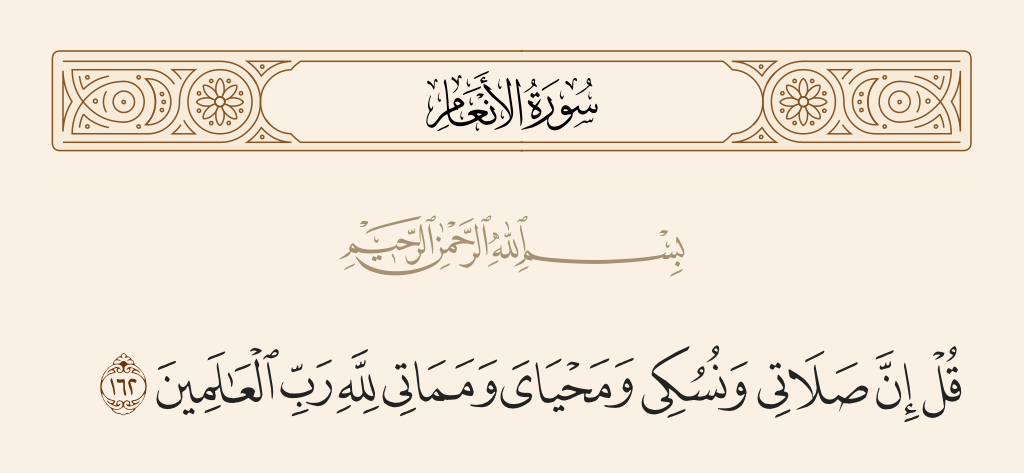 سُورَةُ الأَنْعَامِ
بِسْمِ ٱللَّهِ ٱلرَّحْمَٰنِ ٱلرَّحِيمِ
قُلْ إِنَّ صَلَاتِى وَنُسُكِى وَمَحْيَاىَ وَمَمَاتِى لِلَّهِ رَبِّ ٱلْعَـٰلَمِينَ ١٦٢